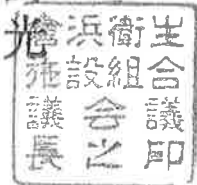 光
浜衛生
施設組合
議会議
長之印